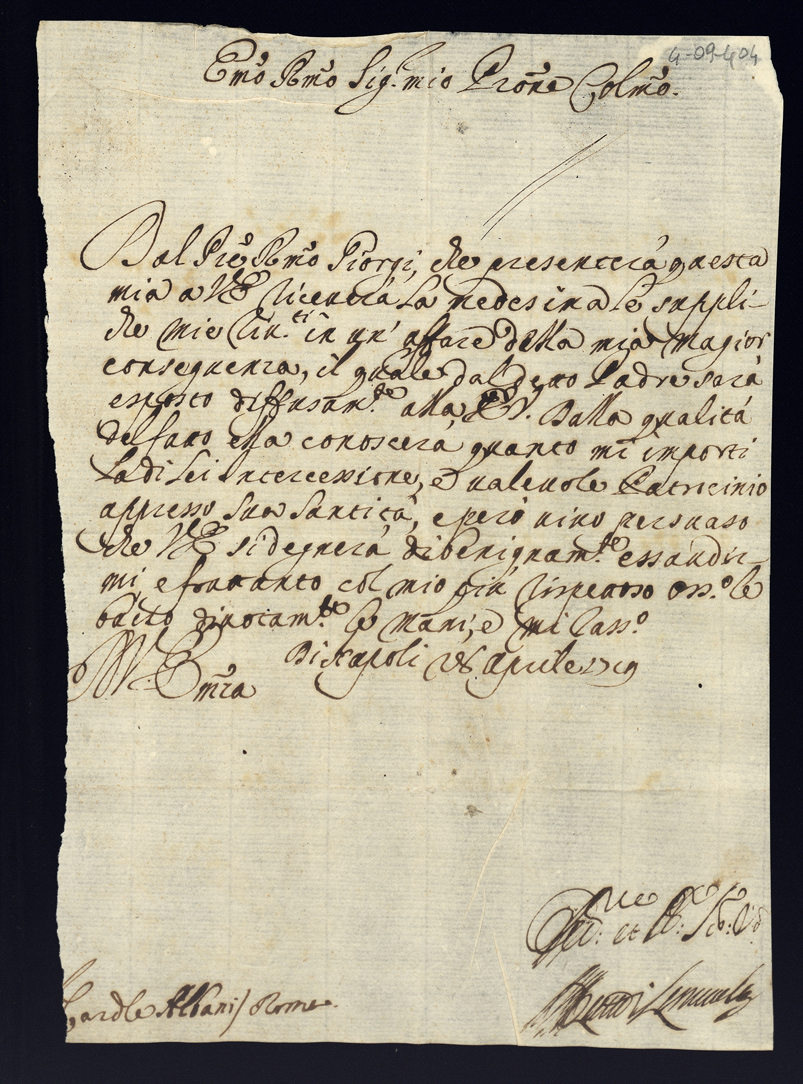 4-09-404
Emo Rmo Sig.r mio Prone Colmo.
Dal Pre Rmo Giorgi, che presenterà questa
mia a VE riceverà la medesima le suppli-
che mie in un' affare della mia magior
conseguenza, il quale dal detto Padre sarà
esposto diffusam.te alla Dalla qualità
del fatto ella conoscerà quanto mi importi
la di lei intercessione, e valevole Patrocinio
appresso Sua Santità, e però vivo persuaso
che VE si degnerà di benignam.te essaudir-
mi e frattanto col mio più rispettoso oss.o le
bacio divotam.te le mani, e mi rass.o
Di Napoli Aprile
VEmza
Card.le Albani / Roma